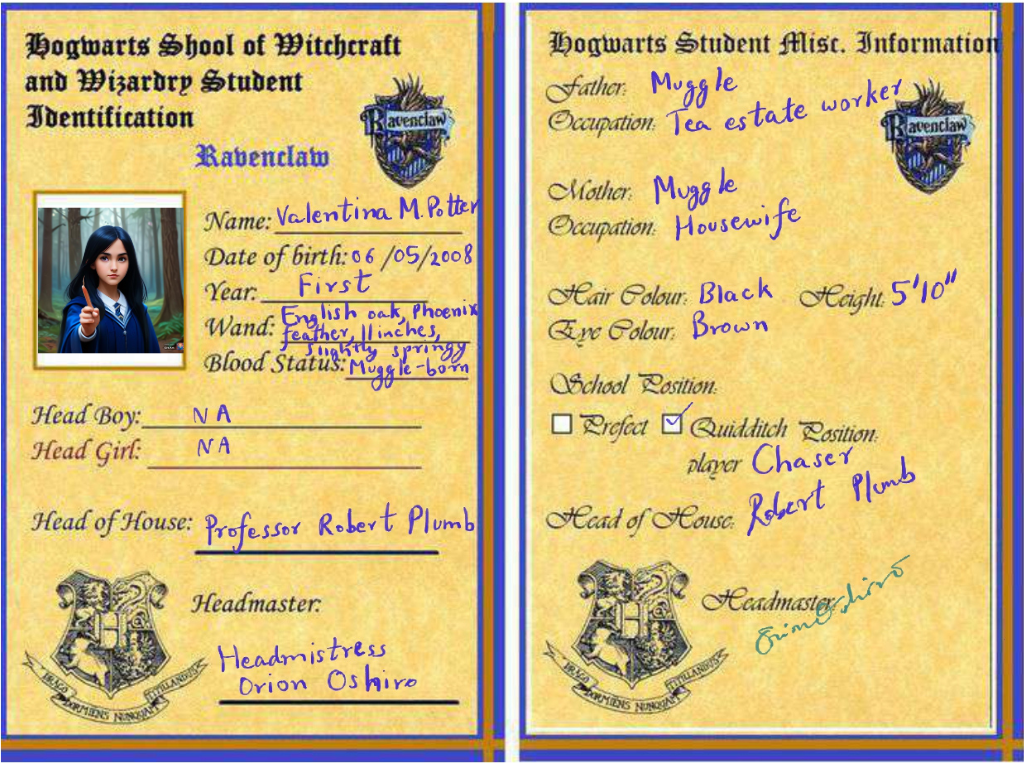 Hogwarts Shool of Witchcraft
and Wizardry Student
Identification
Ravenclaw
Ravenclaw
Name: Valentina M. Potter
Date of birth: 06/05/2008
Year: First
Wand: English oak, Phoenix
feather, 11 inches,
slightly springy
Blood Status: Muggle-born
Head Boy: NA
Head Girl: NA
Head of House: Professor Robert Plumb
Headmaster:
Headmistress
Orion Oshiro
DRACO DORMIENS NUNQUAM TITILLANDUS
Hogwarts Student Misc. Information
Father: Muggle
Occupation: Tea estate worker
Ravenclaw
Mother: Muggle
Occupation: Housewife
Hair Colour: Black Height: 5'10"
Eye Colour: Brown
School Position:
Prefect Quidditch Position:
player Chaser
Head of House: Robert Plumb
Headmaster: Orion Oshiro
DRACO DORMIENS NUNQUAM TITILLANDUS